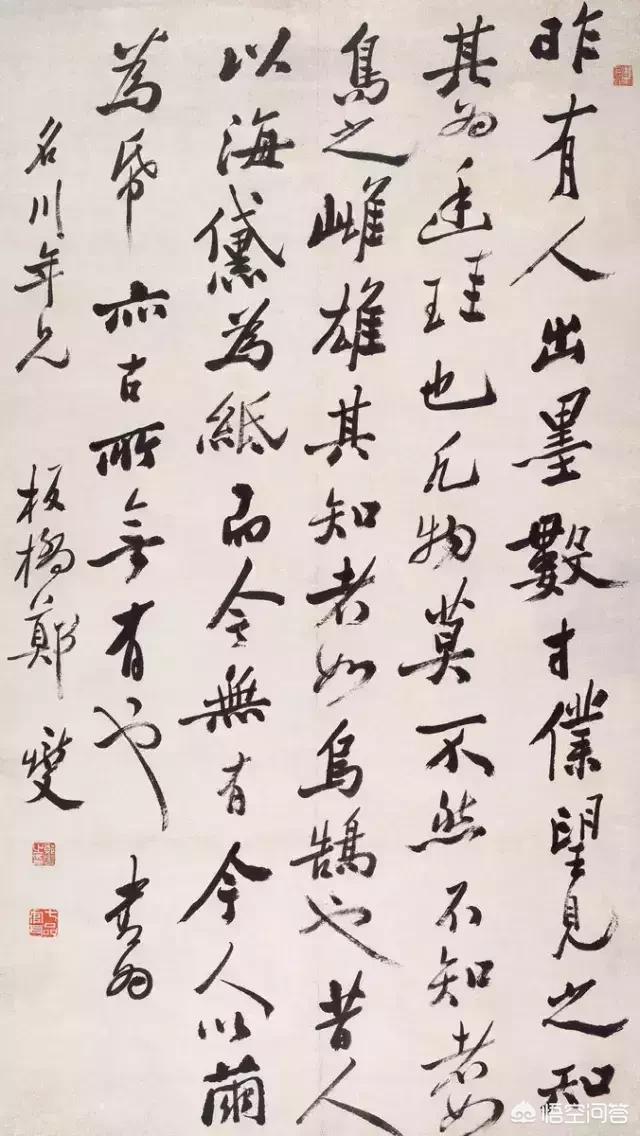 昨有人出墨數寸僕望見之知
其为廷珪也凡物莫不然不知者如
鳥之雌雄其知者如烏鵠也昔人
以海黛為紙而今無有今人以繭
為帋亦古所無有也 書为
名川年兄 板橋鄭燮
七品官耳
悟空问答